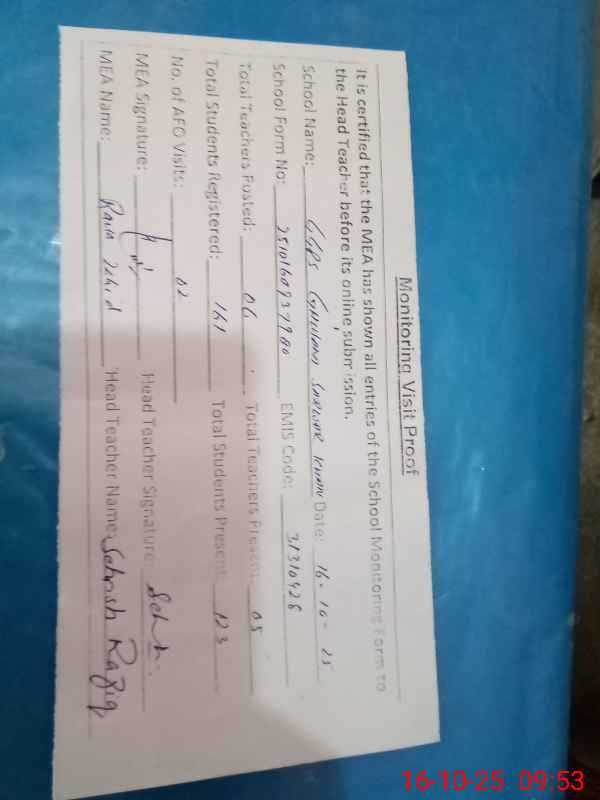 Monitoring Visit Proof
It is certified that the MEA has shown all entries of the School Monitoring Form to
the Head Teacher before its online submission.
School Name: GGPS Date: 16-10-25
School Form No: EMIS Code: 31310426
Total Teachers Posted: 06 Total Teachers Present: 05
Total Students Registered: 161 Total Students Present: 123
No. of AFO Visits: 02
MEA Signature: Head Teacher Signature:
MEA Name: Rana Zahid Head Teacher Name: Sehrish Raziq
16-10-25 09:53